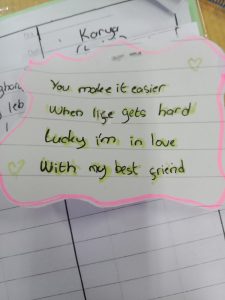 Karya
You make it easier
When life gets hard
Lucky i'm in love
With my best friend